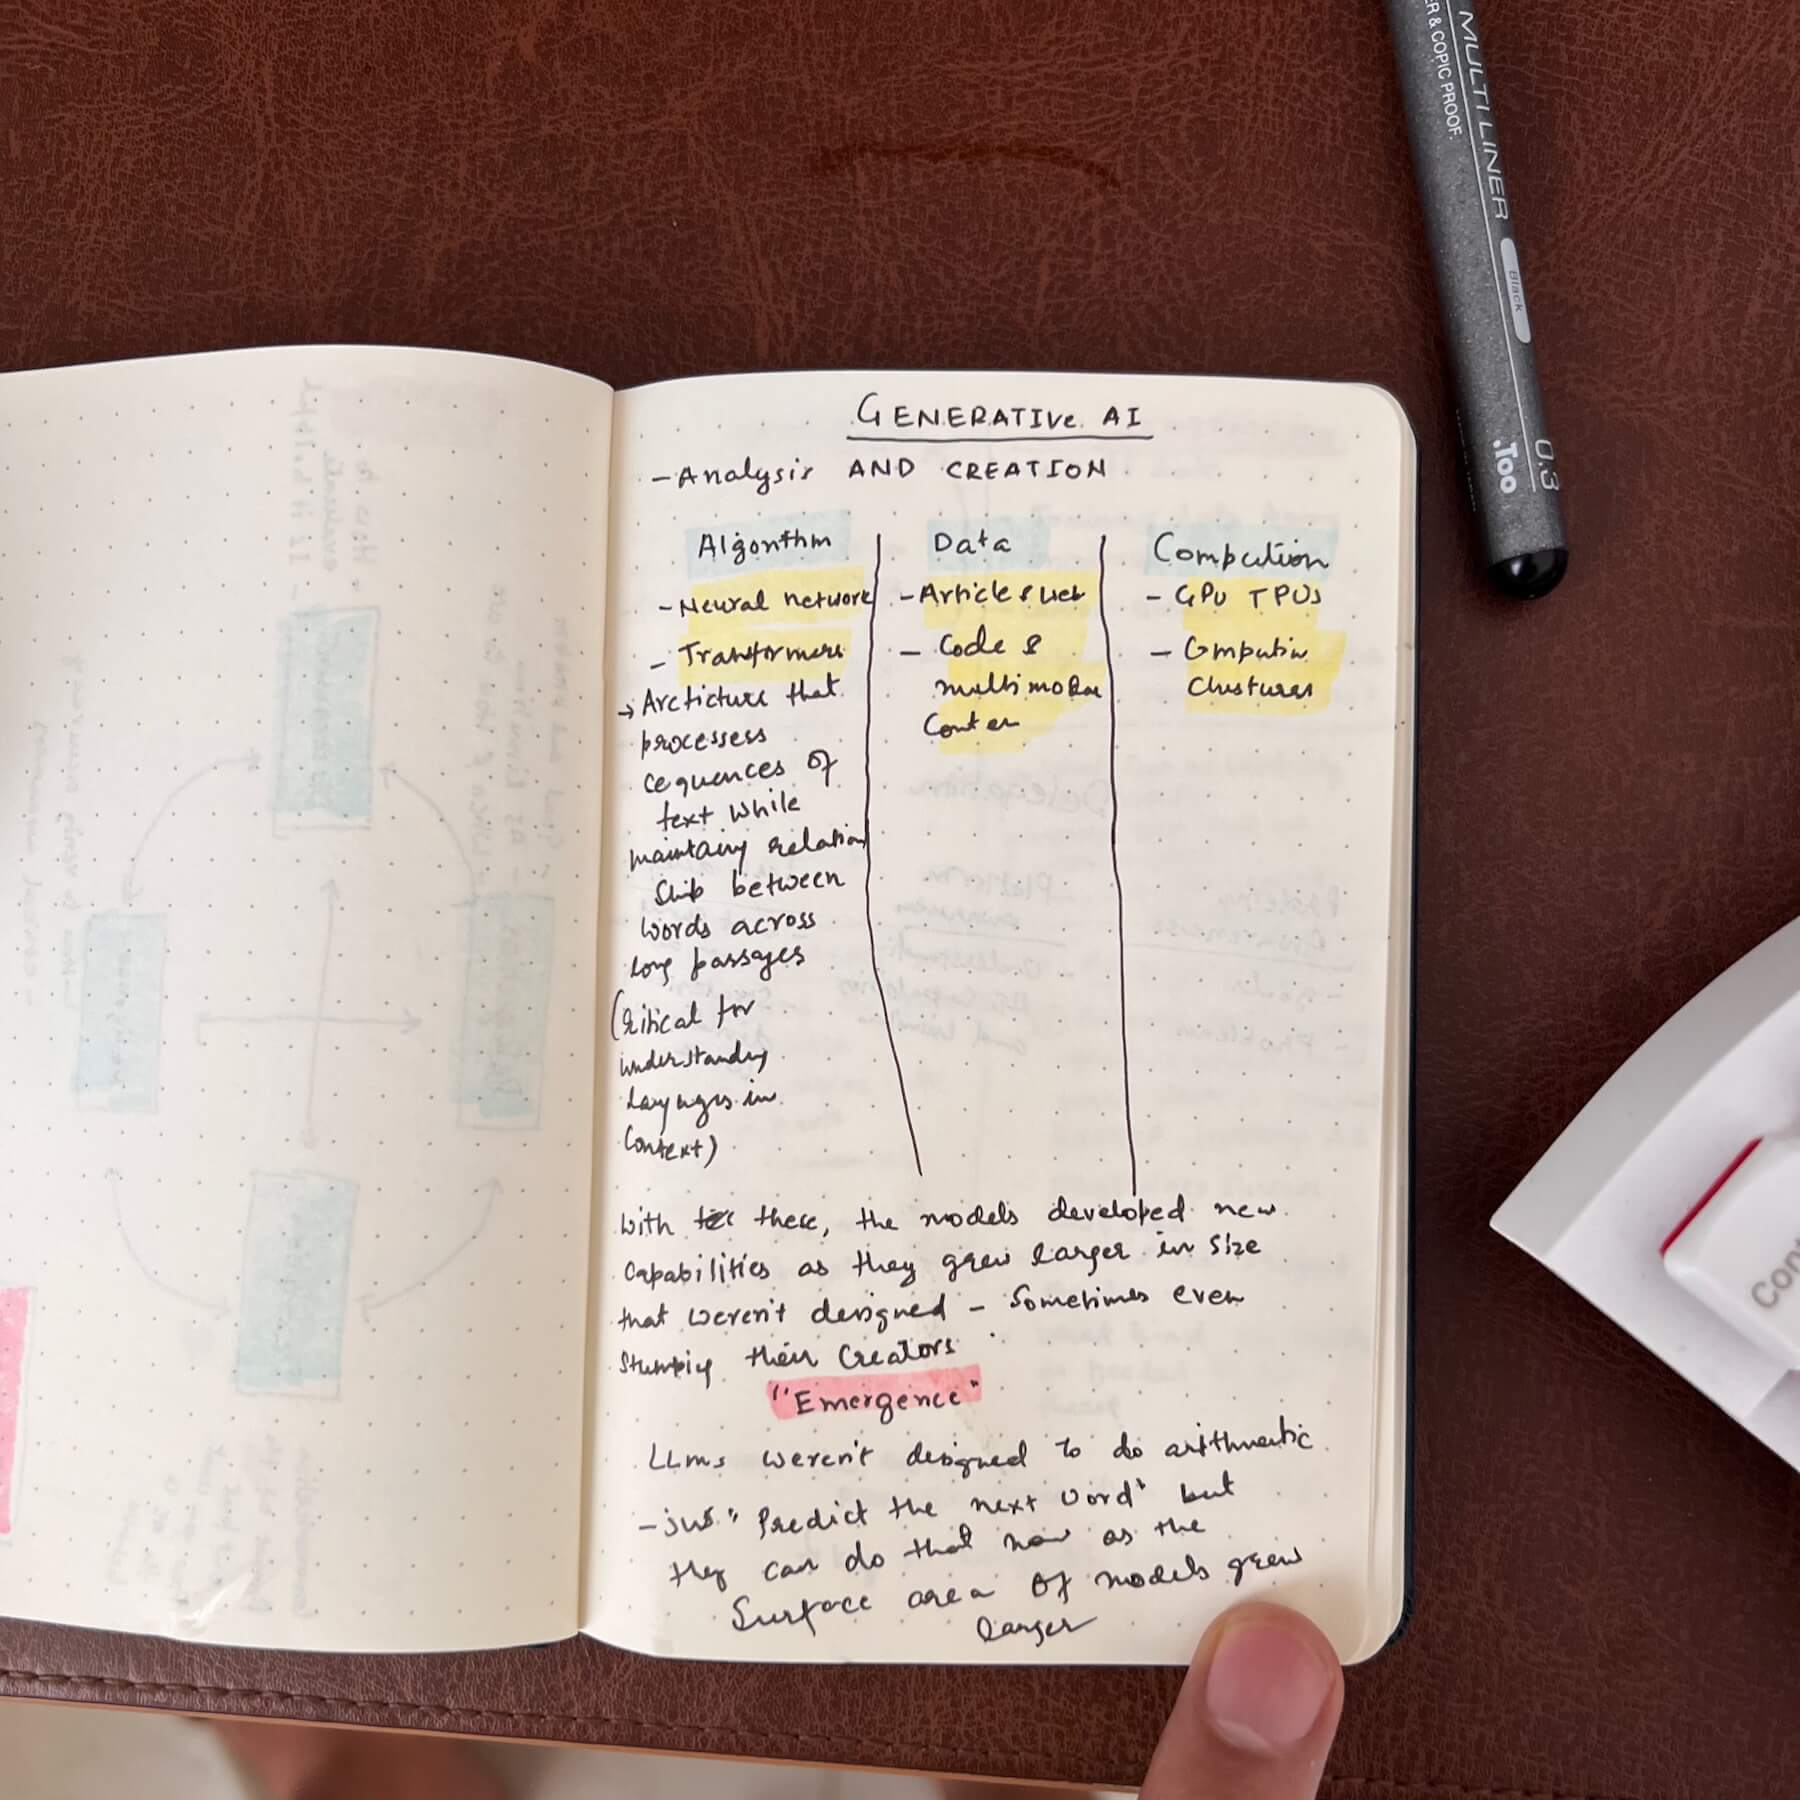 GENERATIVE AI
- Analysis AND CREATION
Algorithm
- Neural network
- Transformers
→ Arcticture that
processess
cequences of
text while
maintaing relation
ship between
words across
long passages
(Critical for
understanding
languages in
context)
Data
- Articles web
- Code &
multimodal
Conten
Compution
- GPU TPUs
- Computin
Clustures
with these, the models developed new
capabilities as they grew larger in size
that weren't designed - Sometimes even
stumping their Creators
"Emergence"
LLMs weren't designed to do arithmetic
- jus "Predict the next word" but
they can do that now as the
Surface area of models grew
larger
MULTI LINER
ER & COPIC PROOF.
Black
0.3
.Too
Con